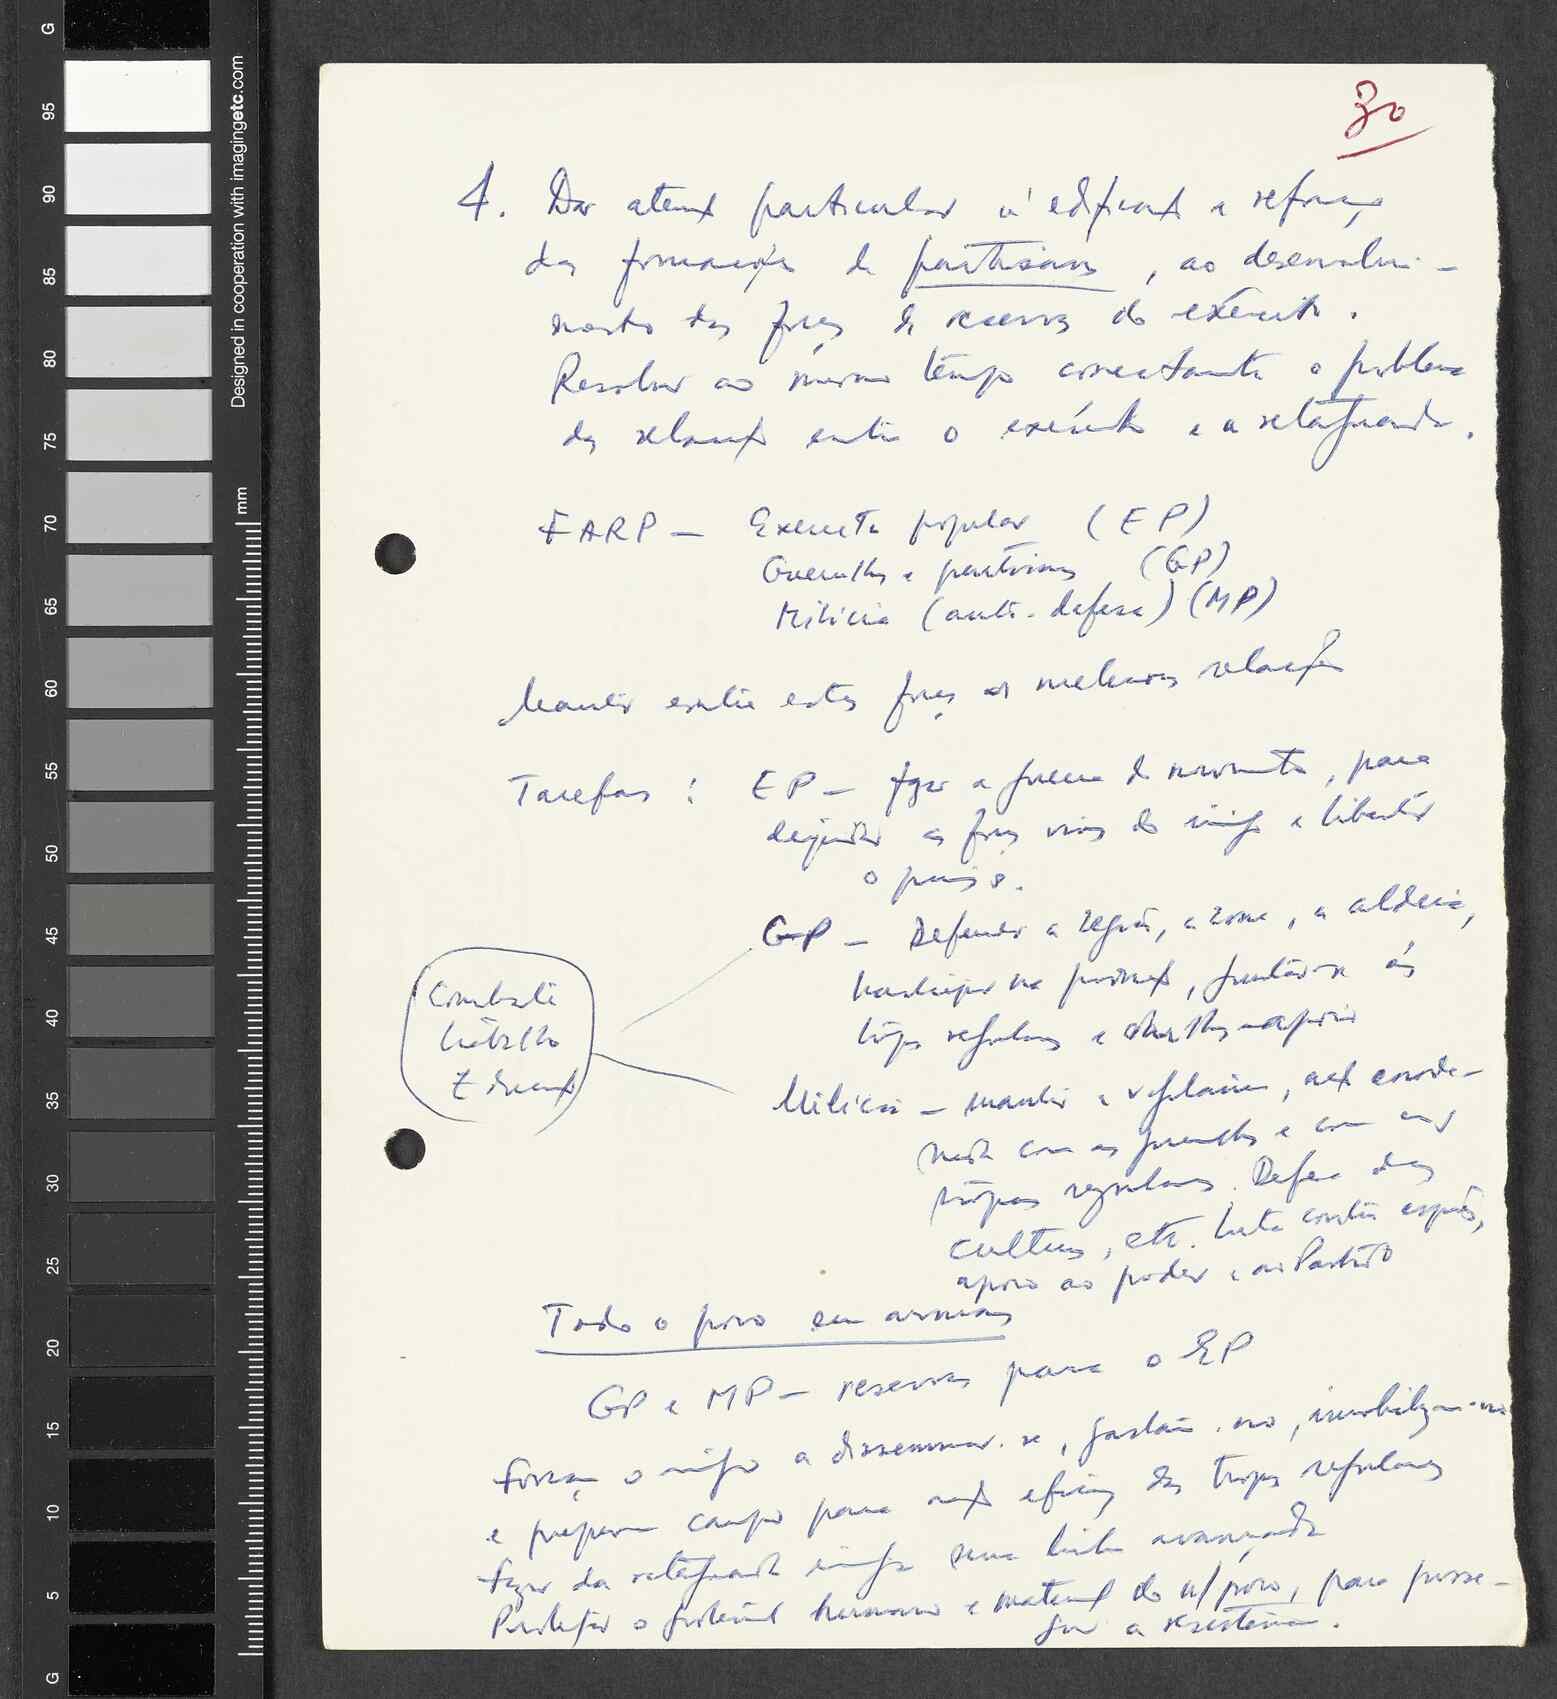 30
4. Dar atenç particular à edificaç e reforço
das formações de partisans, ao desenvolvi-
mento das forças de reserva do exército.
Resolver ao mesmo tempo correctamente o problema
da relaç entre o exército e a retaguarda.
FARP — Exercito popular (EP)
Guerrilhas e partisans (GP)
Milicia (auto-defesa) (MP)
Manter entre estas forças as melhores relações
Tarefas : EP — fazer a guerra de movimento, para
as forças vivas do inimigo e libertar
o país.
GP — Defender a região, a zona, a aldeia,
participar na produç, juntar-se às
tropas regulares e
Combate
trabalho
Educaç
Milicia — manter a vigilância, acç coorde-
nada com as guerrilhas e com as
tropas regulares. Defesa das
culturas, etc. Luta contra espiões,
apoio ao poder e ao Partido
Todo o povo em armas
GP e MP — reservas para o EP
Forçam o inimigo a disseminar-se, gastam-no, imobilizam-no
e preparam campo para acç eficaz das tropas regulares
Fazer da retaguarda inimiga uma linha avançada
Proteger o potencial humano e material do n/ povo, para prosse-
guir a resistência.
G
95
90
85
80
75
70
65
60
55
50
45
40
35
30
25
20
15
10
5
G
Designed in cooperation with imagingetc.com
mm